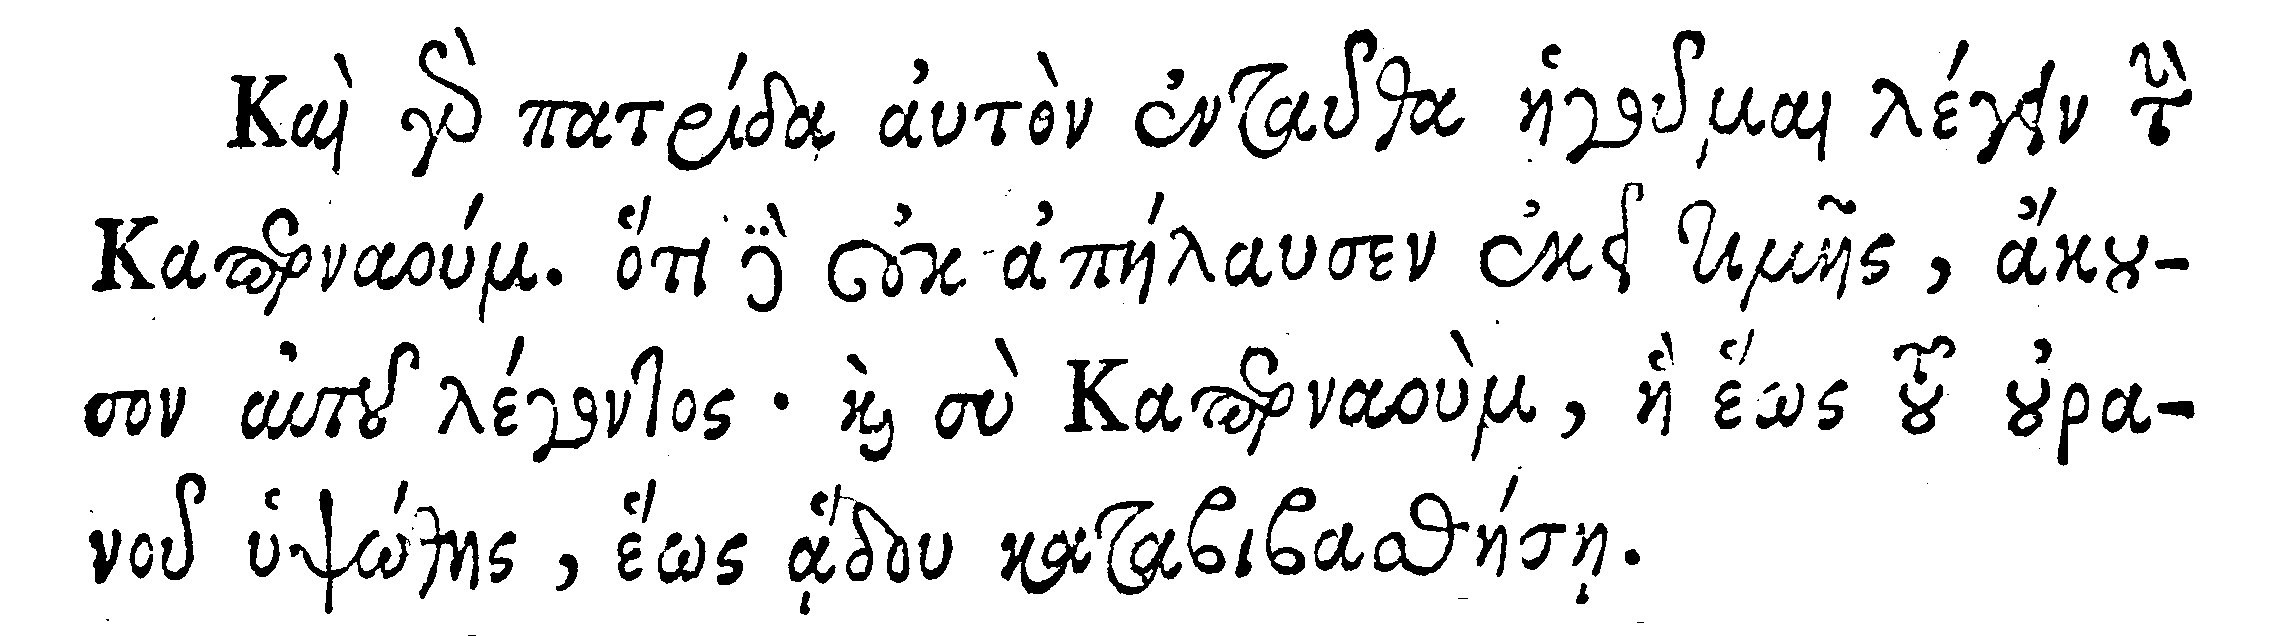 Καὶ γὰρ πατρίδα αὐτὸν ἐνταῦθα ἡγοῦμαι λέγειν τὴν
Καπερναούμ. ὅτι δὲ οὐκ ἀπήλαυσεν ἐκεῖ τιμῆς, ἄκου-
σον αὐτοῦ λέγοντος· καὶ σὺ Καπερναοὺμ, ἡ ἕως τοῦ οὐρα-
νοῦ ὑψώθης, ἕως ᾅδου καταβιβασθήσῃ.